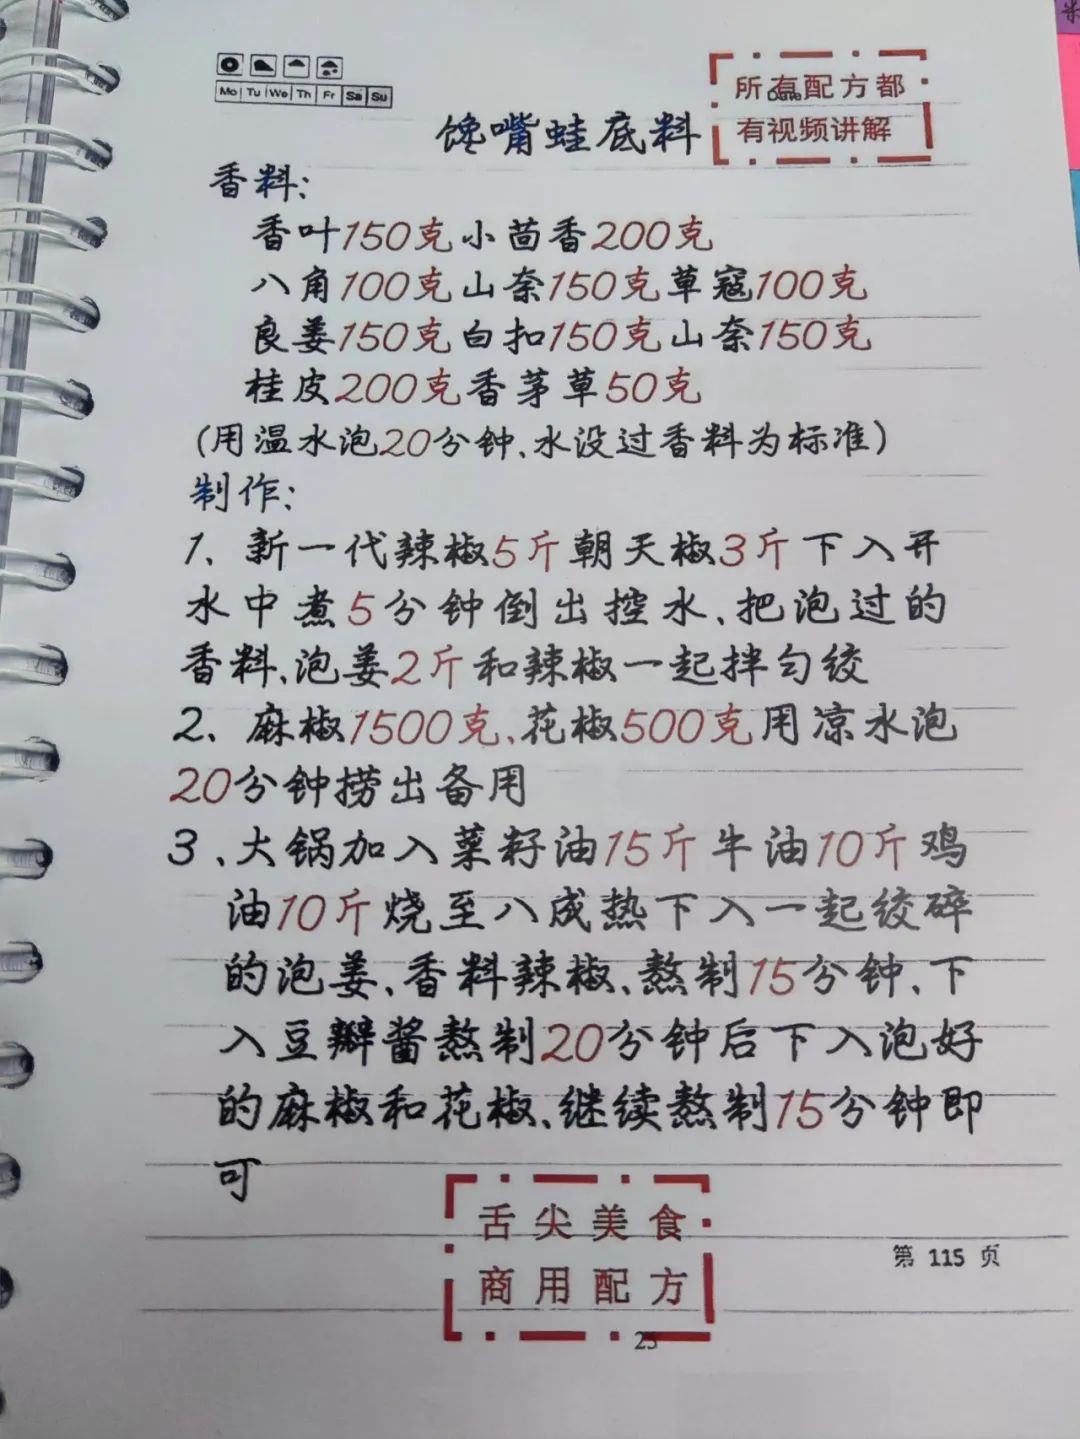 Mo Tu We Th Fr Sa Su
所有配方都
有视频讲解
馋嘴蛙底料
香料:
香叶150克小茴香200克
八角100克山奈150克草寇100克
良姜150克白扣150克山奈150克
桂皮200克香茅草50克
(用温水泡20分钟、水没过香料为标准)
制作:
1、新一代辣椒5斤朝天椒3斤下入开
水中煮5分钟倒出控水、把泡过的
香料、泡姜2斤和辣椒一起拌匀绞
2、麻椒1500克、花椒500克用凉水泡
20分钟捞出备用
3、大锅加入菜籽油15斤牛油10斤鸡
油10斤烧至八成热下入一起绞碎
的泡姜、香料辣椒、熬制15分钟、下
入豆瓣酱熬制20分钟后下入泡好
的麻椒和花椒、继续熬制15分钟即
可
舌尖美食
商用配方
第 115 页